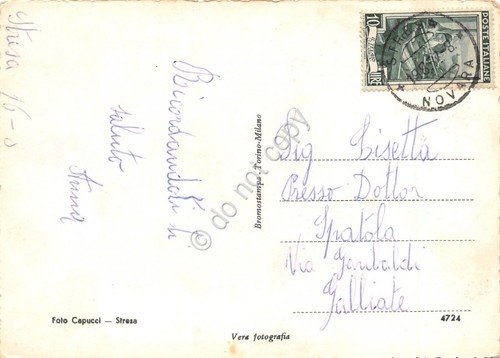 Stresa 16-8
Ricordandoti ti
saluto
Anna
Foto Capucci — Stresa
Vera fotografia
Bromostampa-Torino-Milano
do not copy
10
LIRE
POSTE ITALIANE
STRESA
NOVARA
Sig Lisetta
Presso Dottor
Spatola
Via Garibaldi
Galliate
4724